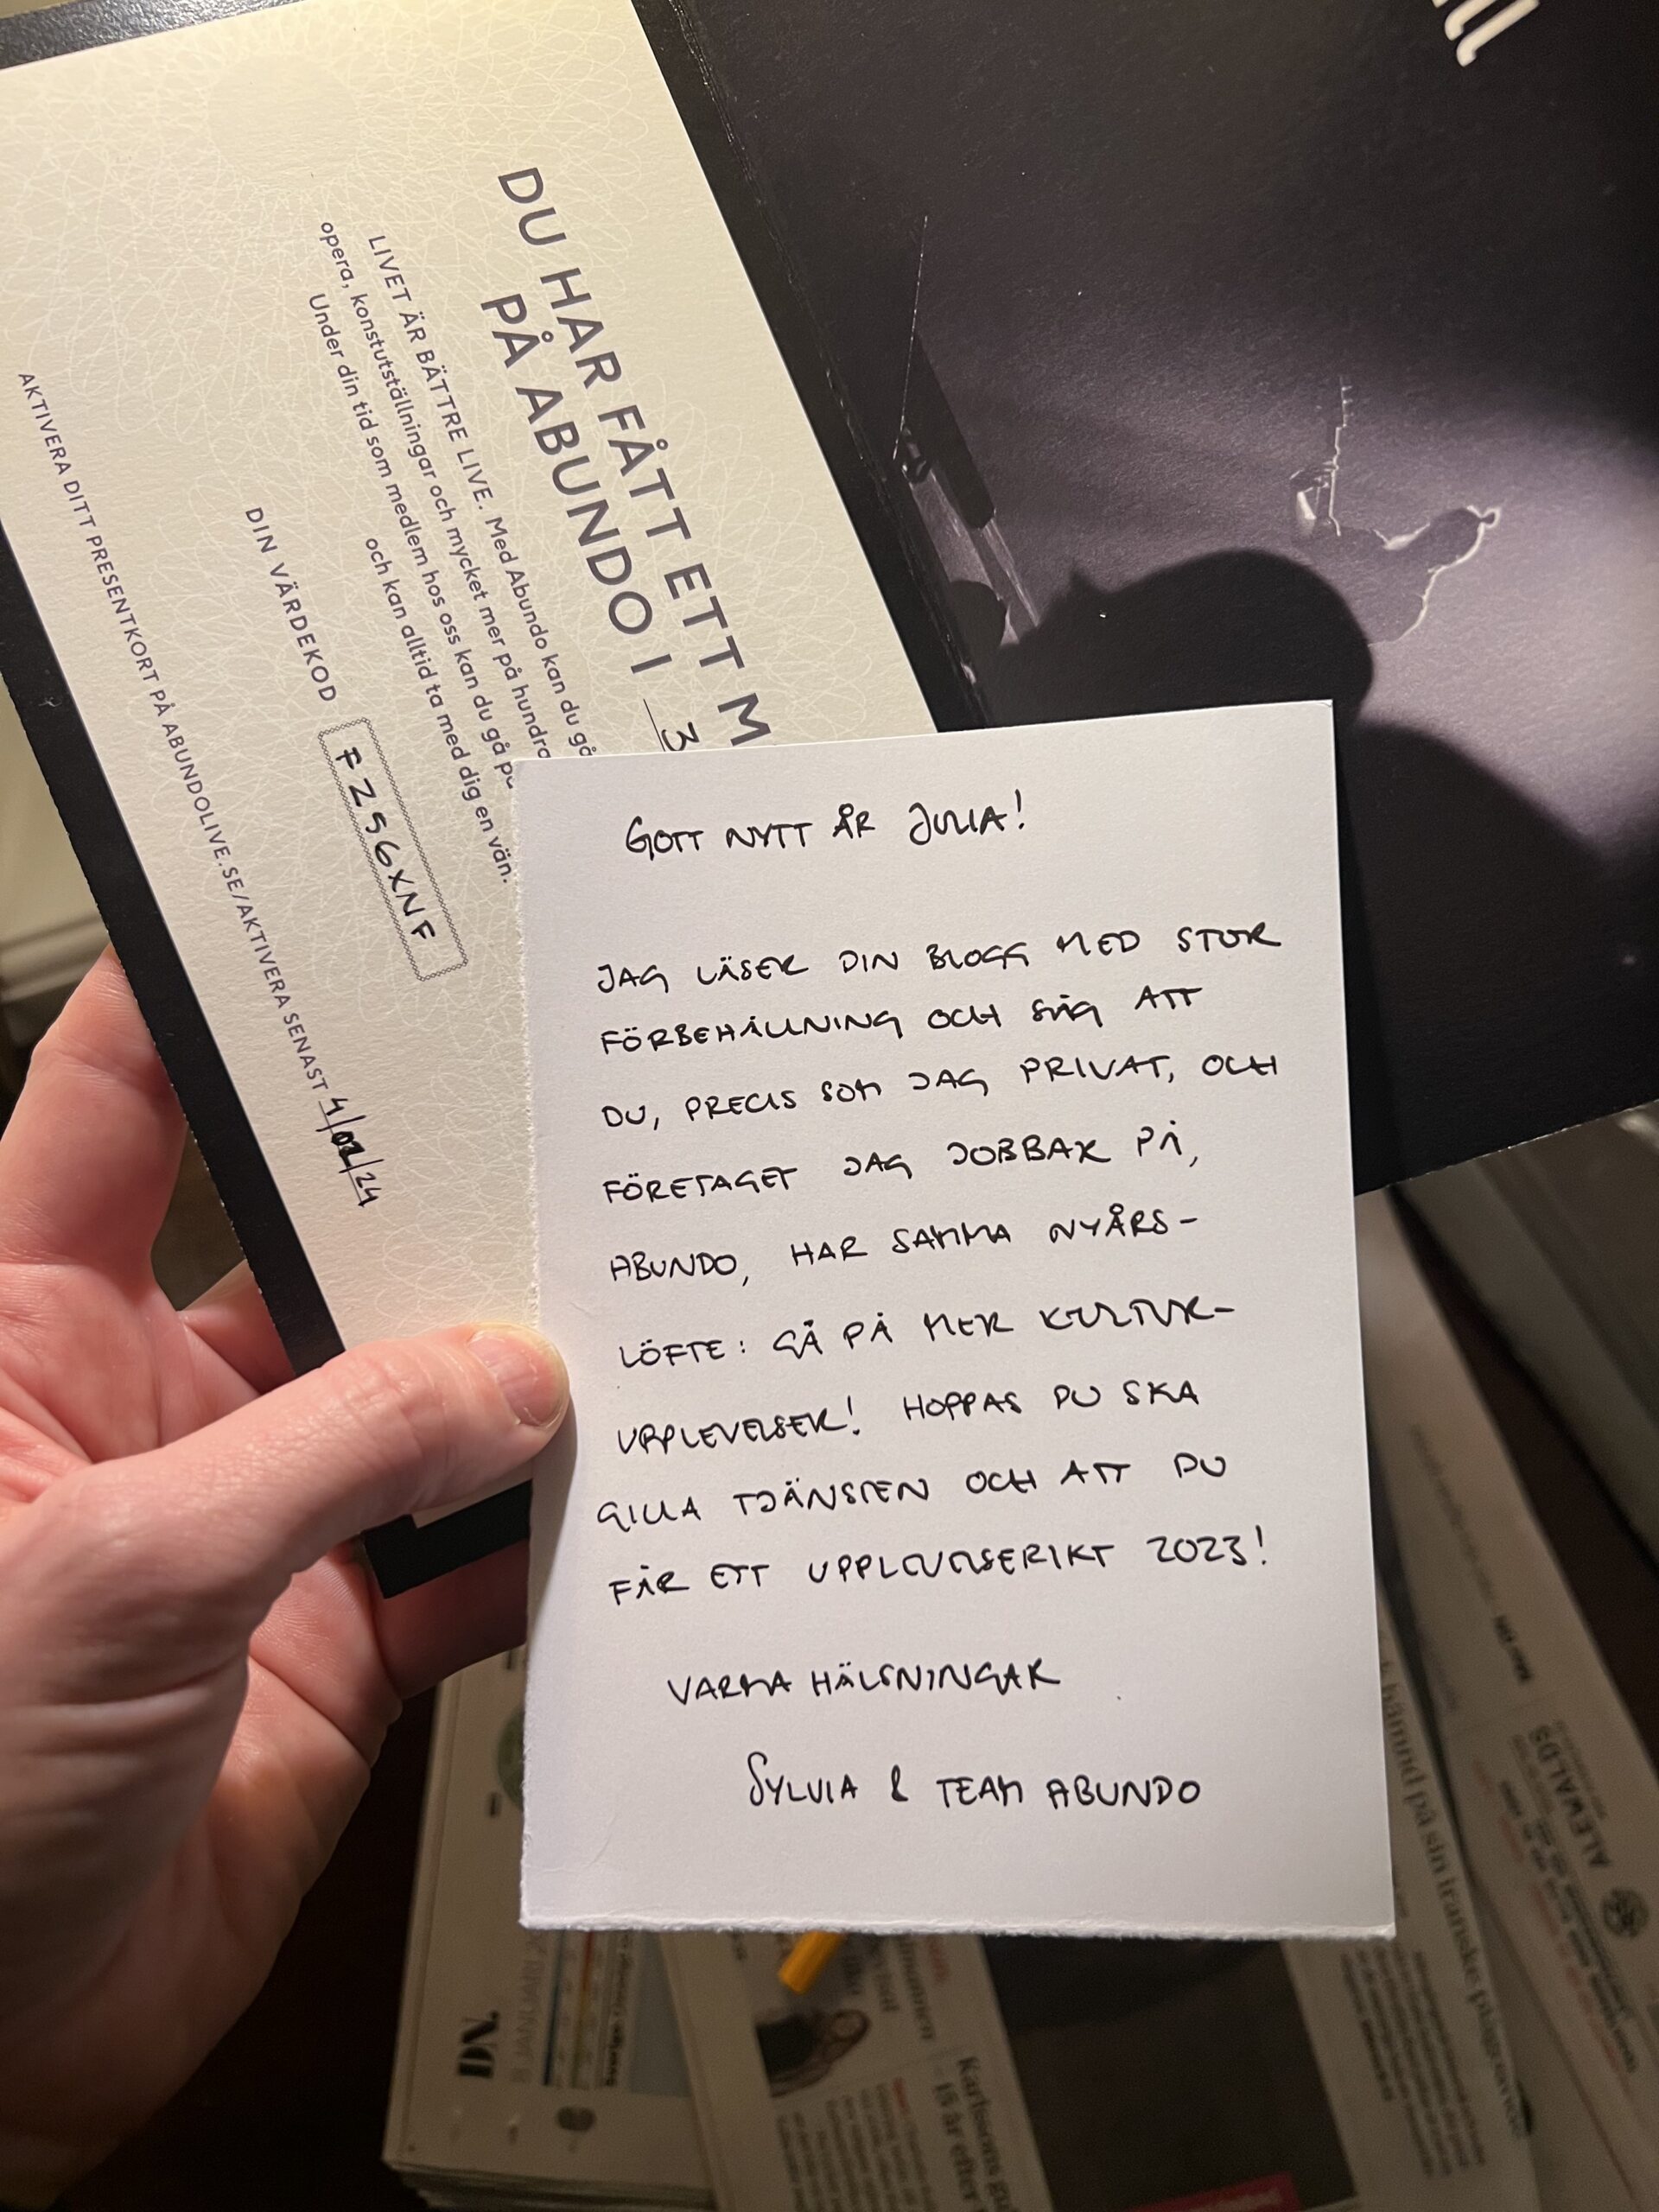 DU HAR FÅTT ETT M
PÅ ABUNDO I 3
LIVET ÄR BÄTTRE LIVE. Med Abundo kan du gå
opera, konstutställningar och mycket mer på hundra
Under din tid som medlem hos oss kan du gå på
och kan alltid ta med dig en vän.
DIN VÄRDEKOD FZ56XNF
AKTIVERA DITT PRESENTKORT PÅ ABUNDOLIVE.SE/AKTIVERA SENAST 4/02/24
GOTT NYTT ÅR JULIA!
JAG LÄSER DIN BLOGG MED STOR
FÖRBEHÅLLNING OCH SÅG ATT
DU, PRECIS SOM JAG PRIVAT, OCH
FÖRETAGET JAG JOBBAR PÅ,
ABUNDO, HAR SAMMA NYÅRS-
LÖFTE: GÅ PÅ MER KULTUR-
UPPLEVELSER! HOPPAS DU SKA
GILLA TJÄNSTEN OCH ATT DU
FÅR ETT UPPLEVELSERIKT 2023!
VARMA HÄLSNINGAR
SYLVIA & TEAM ABUNDO
DN.
8 JANUARI
Karlssons
hämnd på sin iranske plågoande
ALEWALDS